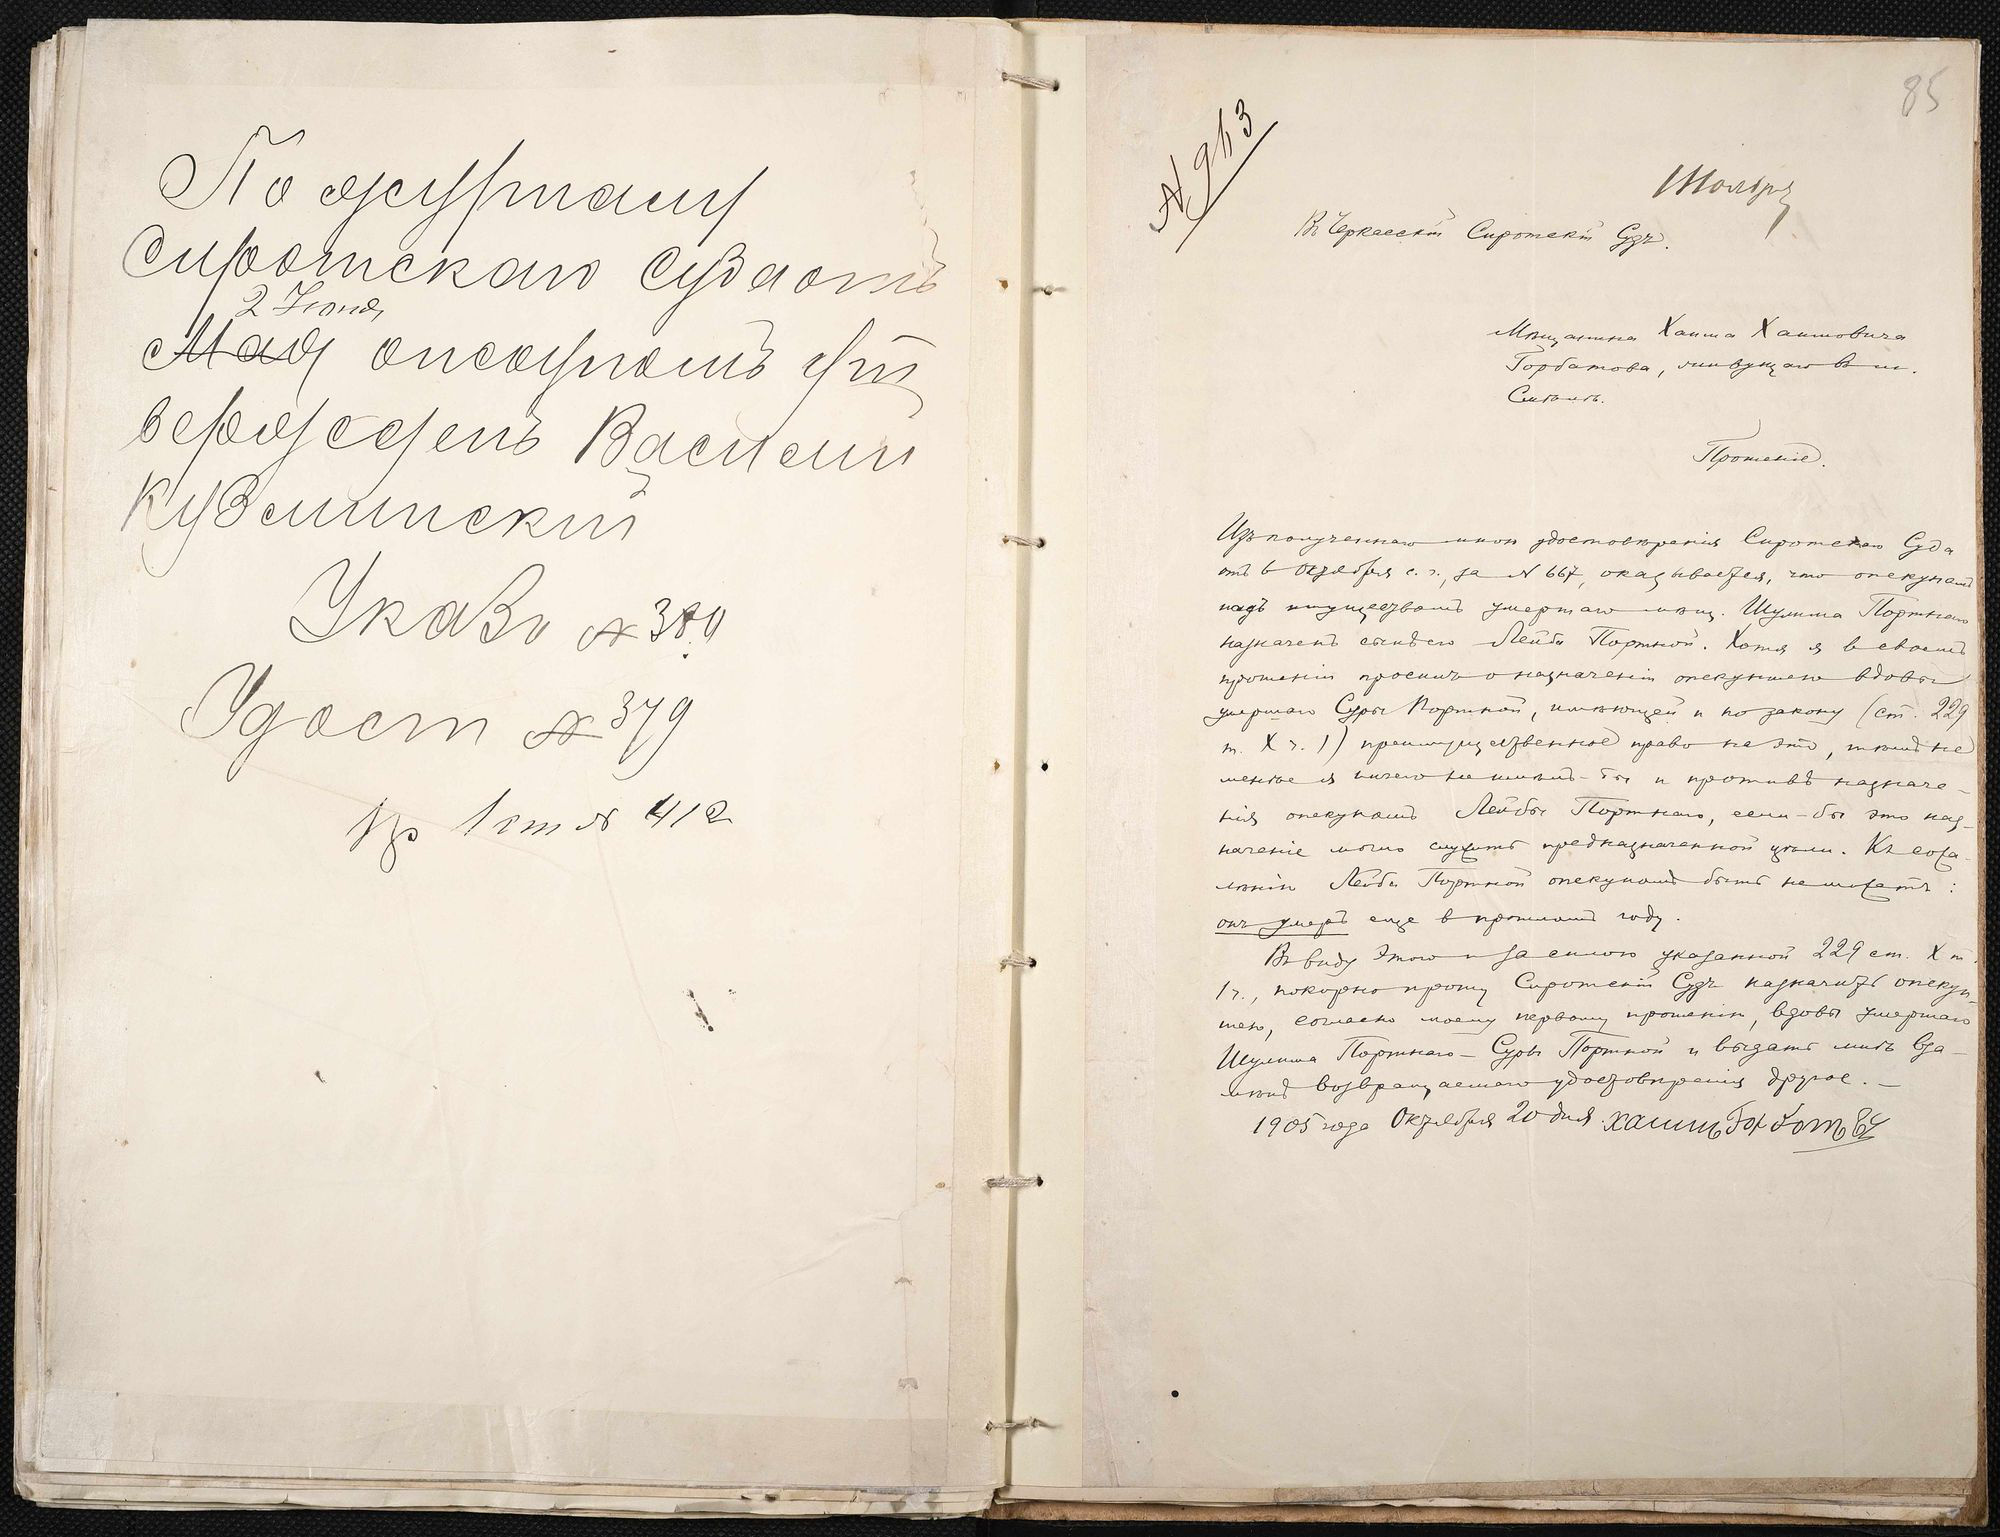 По журналу
Сиротскаго Суда отъ
2 Іюня
Мая опекуномъ ут
вержденъ Василій
Кузминскій
Указъ №
Удост № 379
1 ст № 412
85
№ 913
Въ Черкасскій Сиротскій Судъ.
Мѣщанина Хаима Хаимовича
Горбатова, живущаго в м.
Смѣлѣ.
Прошеніе.
Изъ полученнаго мною удостовѣренія Сиротскаго Суда
отъ 6 октября с. г., за № 667, оказывается, что опекуномъ
надъ имуществомъ умершаго мѣщ. Шулима Портнаго
назначенъ сынъ его Лейба Портной. Хотя я в своемъ
прошеніи просилъ о назначеніи опекуншею вдовы
умершаго Суры Портной, имѣющей и по закону (ст. 229
т. X ч. 1) преимущественное право на это, тѣмъ не
менѣе я ничего не имѣлъ-бы и противъ назначе-
нія опекуномъ Лейбы Портнаго, если-бы это наз-
наченіе могло служить предназначенной цѣли. Къ сожа-
лѣнію Лейба Портной опекуномъ быть не можетъ:
онъ умеръ еще в прошломъ году.
Въ виду этого и за силою указанной 229 ст. X т.
1 ч., покорно прошу Сиротскій Судъ назначить опекун-
шею, согласно моему первому прошенію, вдову умершаго
Шулима Портнаго - Суру Портной и выдать мнѣ вза-
мѣнъ возвращаемаго удостовѣренія другое. -
1905 года Октября 20 дня. Хаимъ Горбатовъ